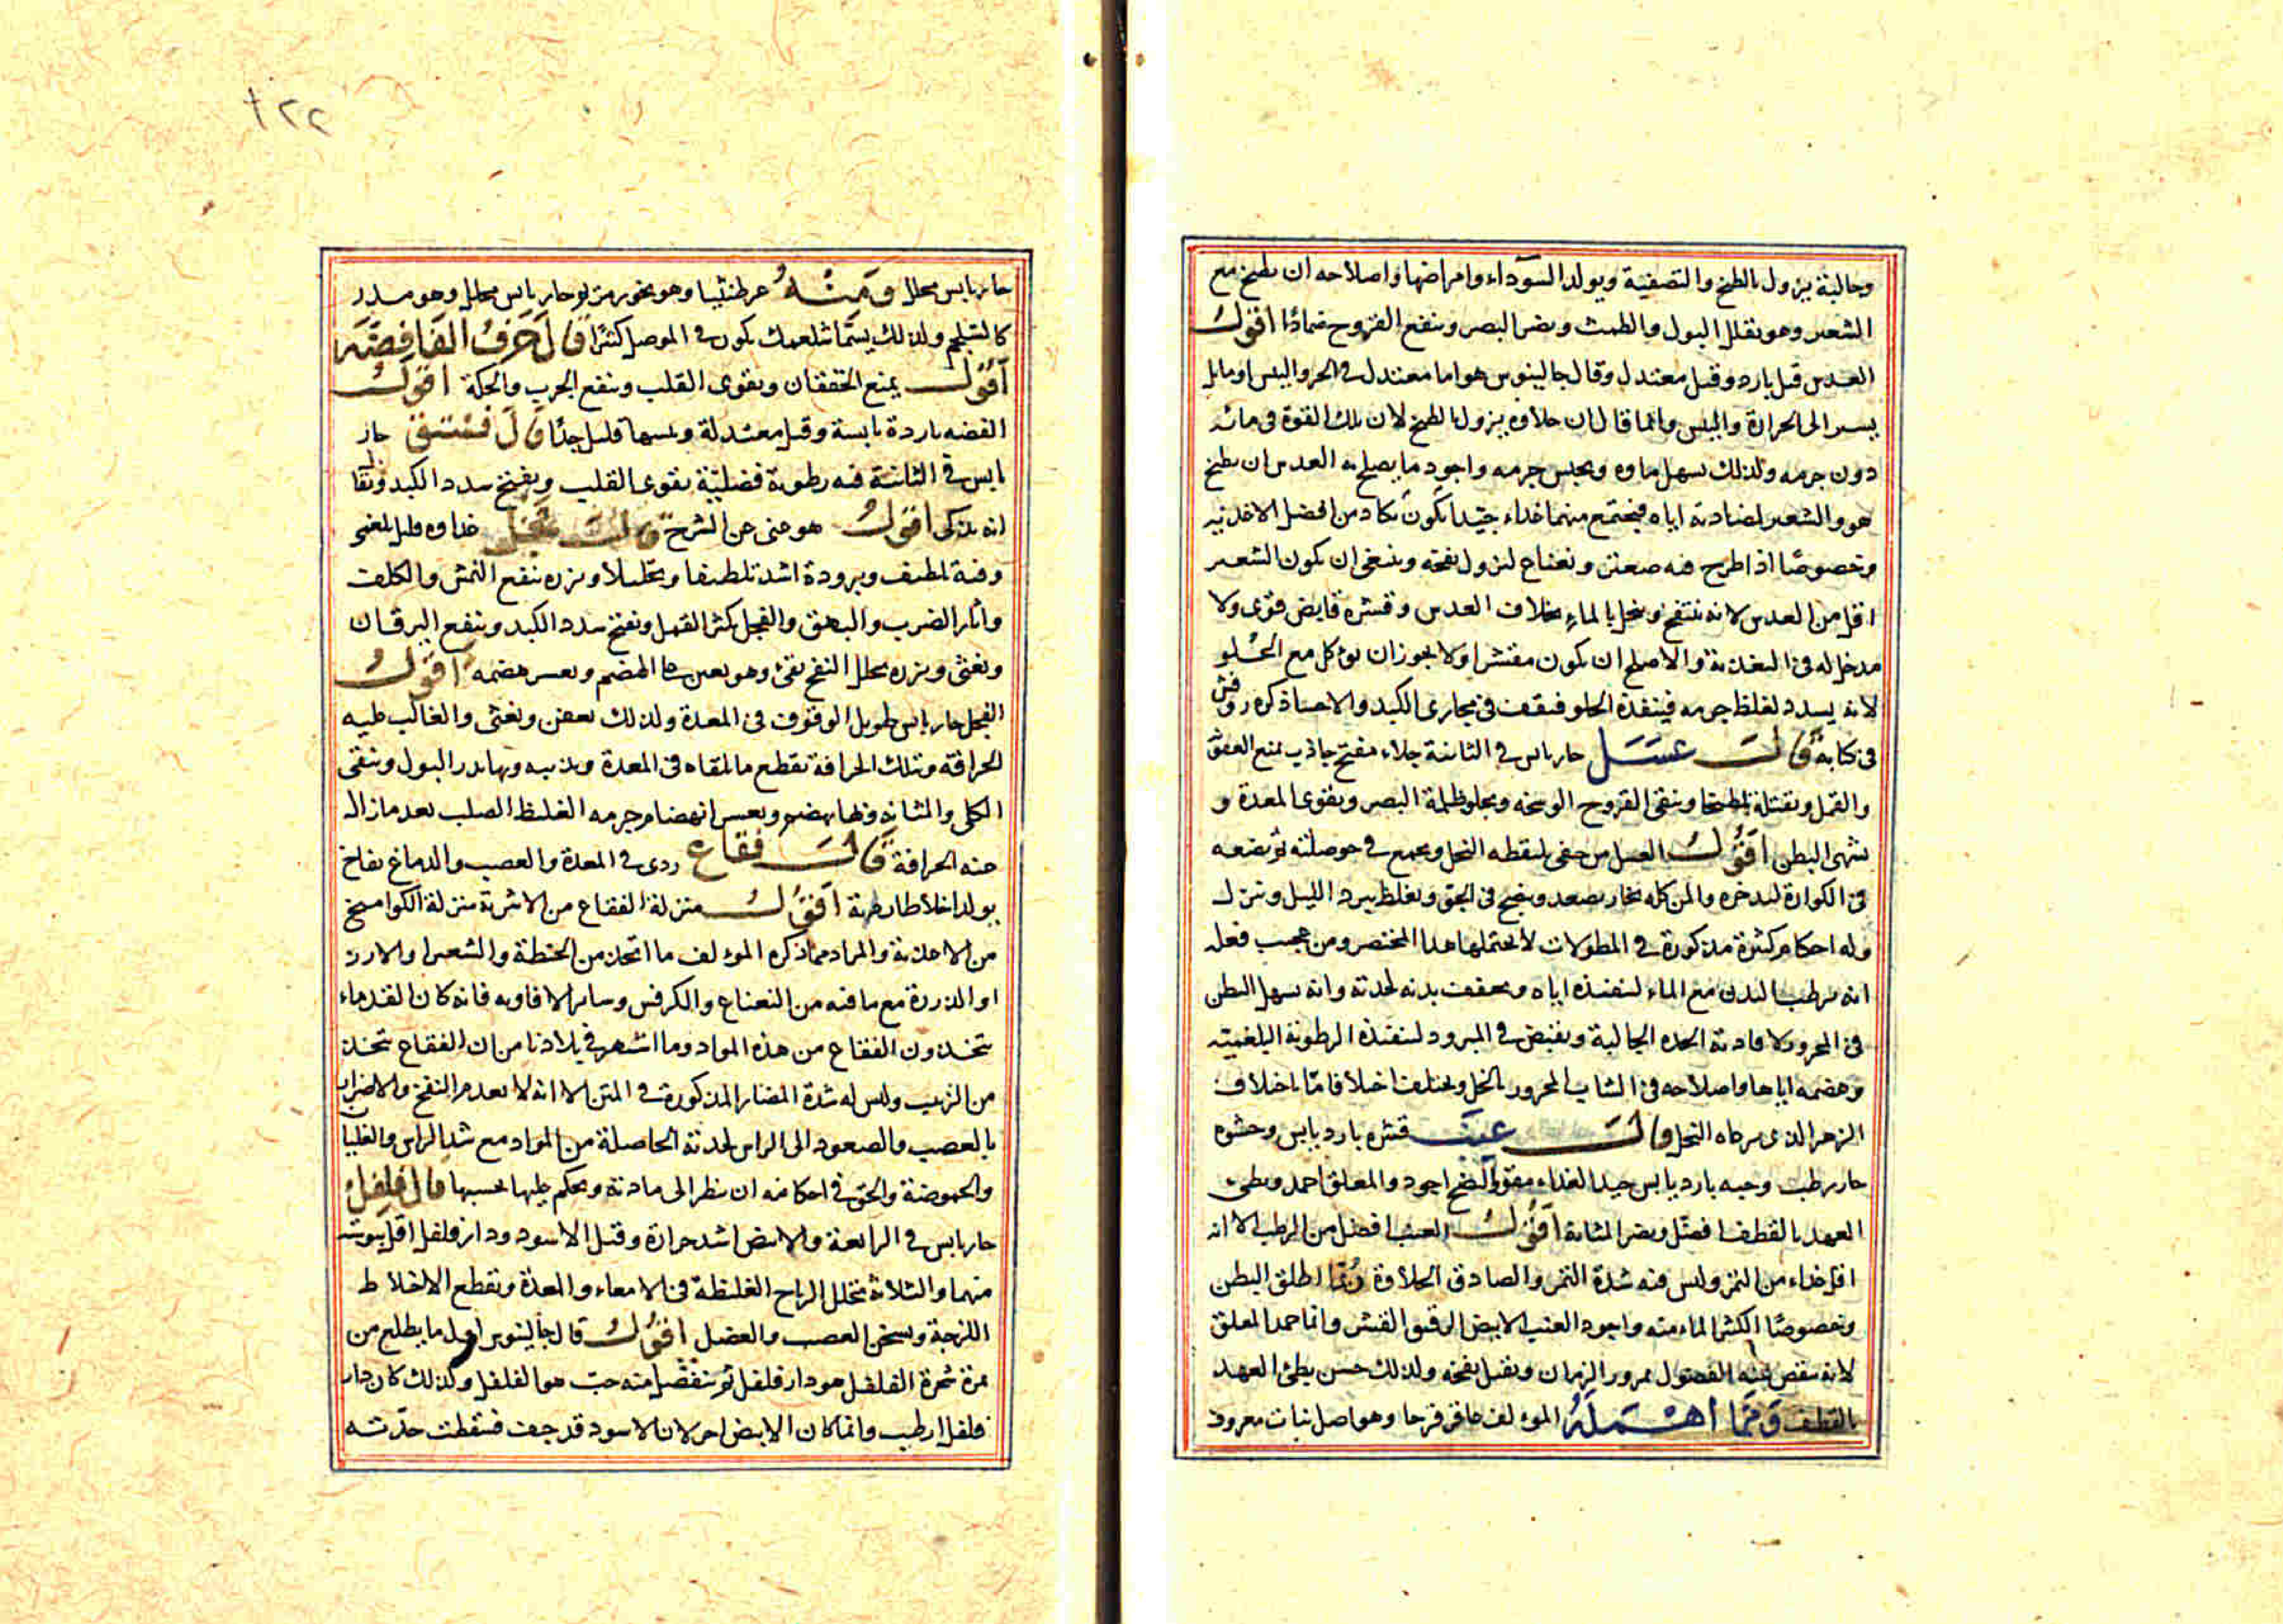 وجالينة يزول بالطبخ والتصفية ويولد السوداء وامراضها واصلاحه ان يطبخ مع
الشعير وهو يقلل البول والطمث ويضر البصر وينفع القروح ضمادًا اقول
العدس قيل بارد وقيل معتدل وقال جالينوس هو اما معتدل في الحر واليبس او مايل
يسير الى الحرارة واليبس وانما قال ان حلاوه يزول بالطبخ لان تلك القوة في مائه
دون جرمه ولذلك يسهل ماوه ويحبس جرمه واجود ما يصلح به العدس ان يطبخ
هو والشعير لمضادته اياه فيجتمع منهما غذاء جيّدا يكون يكاد من افضل الاغذية
وخصوصًا اذا طرح فيه صعتر ونعناع لتزول نفخه وينبغي ان يكون الشعير
اقل من العدس لانه ينتفخ وينحل بالماء بخلاف العدس وقشره قابض قوى ولا
مدخل له في التغذية والاصلح ان يكون مقشرا ولا يجوز ان يؤكل مع الحلو
لانه يسدد لغلظ جرمه فينفذه الحلو فيقف في مجارى الكبد والاحشا ذكره روفس
في كتابه قال عسل حار يابس في الثانية جلاء مفتح جاذب يمنع العفن
والقمل ويقتله لطخا وينقى القروح الوسخه ويجلو ظلمة البصر ويقوى المعدة و
يشهى البطن اقول العسل من خفى يلتقطه النحل ويجمع في حوصلته ثم يضعه
في الكوارة ليدخره والمن كله بخار يصعد وينضج في الجو ويغلظ ببرد الليل وينزل
وله احكام كثيرة مذكورة في المطولات لا يحتملها هذا المختصر ومن عجيب فعله
انه يرطب البدن مع الماء لتنفيذه اياه ويجفف بدنه لحدته وانه يسهل البطن
في المحرور لافادته الحده الجالية ويقبض في المبرود لتنفيذه الرطوبة البلغمية
وهضمه اياها واصلاحه في الشاب المحرور بالخل ويختلف اختلافا تامّا باختلاف
الزهر الذى يرعاه النحل قال عنب قشره بارد يابس وحشوه
حار رطب وحبه بارد يابس جيد الغذاء مقو والنضج اجود والمعلق احمد وبطىء
العهد بالقطف افضل ويضر المثانة اقول العنب افضل من الرطب الا انه
اقل غذاء من التمر وليس فيه شدة التمر والصادق الحلاوة ربّما اطلق البطن
وخصوصًا الكثير الماء منه واجود العنب الابيض الرقيق القشر وانما حمد المعلق
لانه ينقص عنه الفضول بمرور الزمان ويقل نفخه ولذلك حسن بطئ العهد
بالقطف وممّا اهمله المولف عاقر قرحا وهو اصل نبات معروف
حار يابس محلل ومنه عرطنيثا وهو بخور مريم حار يابس محلل وهو مدر
كالشلجم ولذلك يسمّى كون في الموصل كثيرًا قال حرف الفا فضة
اقول يمنع الخفقان ويقوى القلب وينفع الجرب والحكة اقول
الفضه باردة يابسة وقيل معتدلة ويبسها قليل جدًا قال فستق حار
يابس في الثانية فيه رطوبة فضلية يقوى القلب ويفتح سدد الكبد ويقا
انه يذكى اقول هو غنى عن الشرح قال فجل غذاوه قليل بلغمى
وفيه تلطيف وبروده اشد تلطيفا وتحليلا وبزره ينفع النمش والكلف
واثار الضرب والبهق والفجل يكثر القمل ويفتح سدد الكبد وينفع اليرقان
ويغثى وبزره يحلل النفخ يقئ وهو يعين على الهضم ويعسر هضمه اقول
الفجل حار يابس طويل الوقوف في المعدة ولذلك يعفن ويغثى والغالب عليه
الحرافة وبتلك الحرافة يقطع ما يلقاه في المعدة ويذيبه وبها يدر البول وينقى
الكلى والمثانة وبها يهضم ويعسر انهضام جرمه الغليظ الصلب بعد ما زال
عنه الحرافة قال فقاع ردى في المعدة والعصب والدماغ نفاخ
يولد اخلاطا رديه اقول منزلة الفقاع من الاشربة منزلة الكوامخ
من الاغذية والمراد مما ذكره المولف ما اتخذ من الحنطة والشعير والارز
او الذرة مع ما فيه من النعناع والكرفس وساير الافاويه فانه كان القدماء
يتخذون الفقاع من هذه المواد وما اشتهر في بلادنا من ان الفقاع يتخذ
من الزبيب وليس له شدة المضار المذكورة في المتن الا انه لا يعدم النفخ والاضرار
بالعصب والصعود الى الراس لحدته الحاصلة من المواد مع شد الراس والغليان
والحموضة والحق في احكامه ان ينظر الى مادته ويحكم عليها بحسبها قال فلفل
حار يابس في الرابعة والابيض اشد حرارة وقيل الاسود ودار فلفل اقل يبوسته
منهما والثلاثة تحلل الرياح الغليظة في الامعاء والمعدة ويقطع الاخلاط
اللزجة ويسخن العصب والعضل اقول قال جالينوس اول ما يطلع من
ثمرة شجرة الفلفل هو دار فلفل ثم ينفصل منه حبّ هو الفلفل ولذلك كان دار
فلفل ارطب وانما كان الابيض احر لان الاسود قد جف فسقطت حدّته
١٢٢